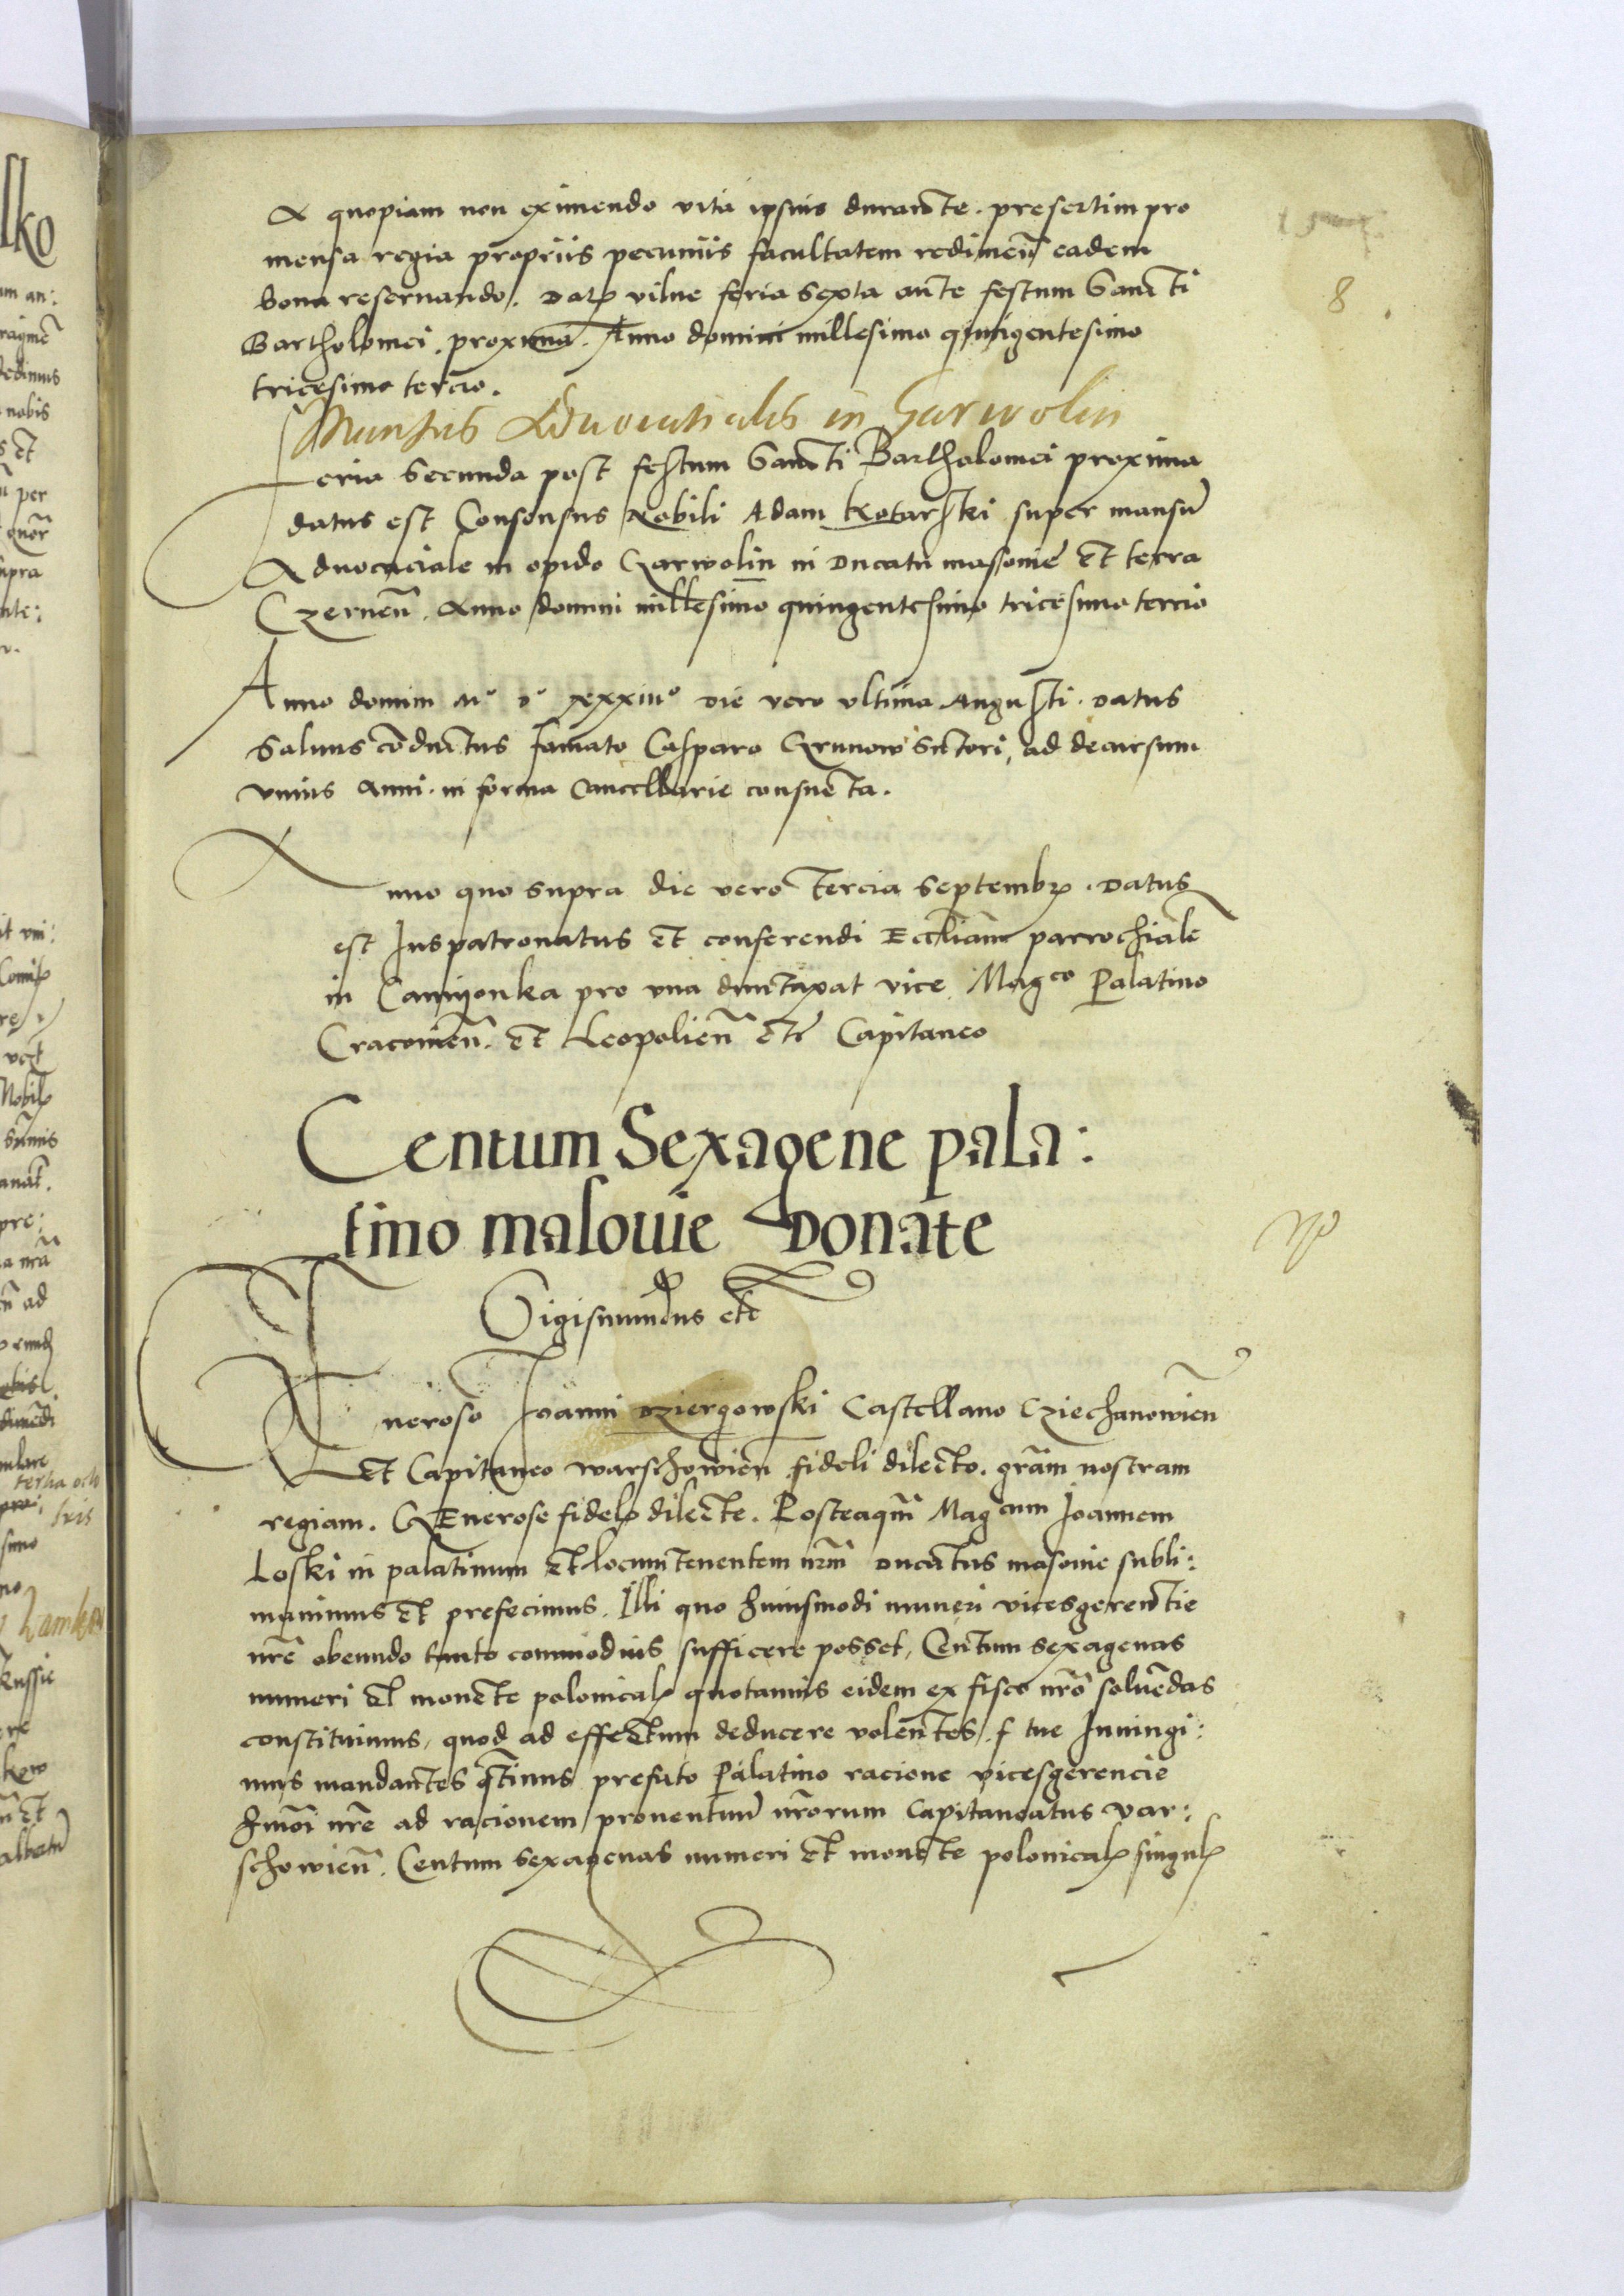 A quopiam non eximendo vita ipsius durante. presertim pro
mensa regia propriis pecuniis facultatem redimen̄ eadem
bona reservando. Dat̨ vilne feria sexta ante festum Sancti
Bartholomei. proxima. Anno domini millesimo quingentesimo
tricesimo tercio.
8
Mansus Advocatialis in Garwolin
Feria secunda post festum Sancti Bartholomei proxima
datus est Consensus Nobili Adam Kotarski super mansū
Advocaciale in opido Garwolin in Ducatu masovie et terra
Czernen̄. Anno domini millesimo quingentesimo tricesimo tercio
Anno domini Mº Dº xxxiiiº die vero ultima Augusti. Datus
Salvus cōductus famato Casparo Grunow Sutori, ad decursum
unius Anni. in forma Cancellarie consueta.
Anno quo supra die vero tercia Septembr̨. Datus
est Iuspatronatus et conferendi Eccliam parrochiale
in Camyonka pro una duntaxat vice Magco Palatino
Cracovien̄. et Leopolien̄ etc̄ Capitaneo
Centum Sexagene pala:
tino masovie Donate
Sigismundus etc̄
Generoso Joanni Dziergowski Castellano Cziechanowien̄
et Capitaneo warschowien̄ fideli dilecto. grām nostram
regiam. GEnerose fidel̨ dilecte. Posteaqm̄ Magcum Joannem
Loski in palatinum et locumtenentem nrm̄ Ducatus masovie subli:
mavimus et prefecimus. Illi quo huiusmodi muneri vicesgerentie
nrē obeundo tanto commodius sufficere posset, Centum sexagenas
numeri et monete polonical̨ quotannis eidem ex fisco nrō solvēdas
constituimus, quod ad effectum deducere volentes. f tue Iniungi:
mus mandantes q̄tinus prefato Palatino racione vicesgerencie
hmōi nrē ad racionem proventuum nrōrum Capitaneatus var:
schowien̄. Centum sexagenas numeri et monete polonical̨ singul̨